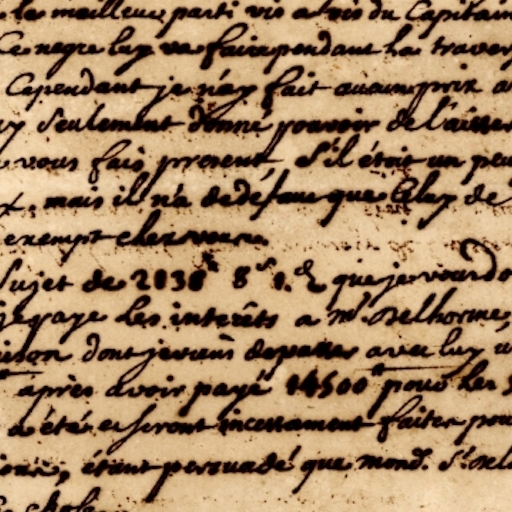 le meilleur parti vis a vis du Capitain
Ce negre luy va faire pendant la traver
Cependant je n'ay fait aucun prix a
y seulement donné pouvoir de l'aitter
vous fais present, S'il étoit un peu
x. mais il n'a de défaut que Celuy de
exempt chez vous.
Sujet de 2030 8 s 1. d que je vous do
je paye les interêts a Mr. Delhorme,
ison dont je viens de passer avec luy u
après avoir payé 14500 pour les
a été et seront incessament faites pou
ions, étant persuadé que mond. Sr. Del